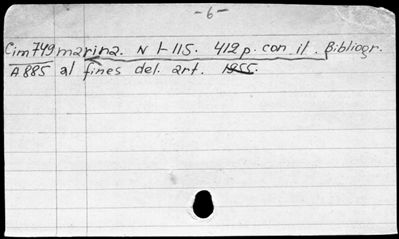 -6-
Cim749 marina. N 1-115. 412 p. con il. Bibliogr.
A885 al fines del. art. 1955.